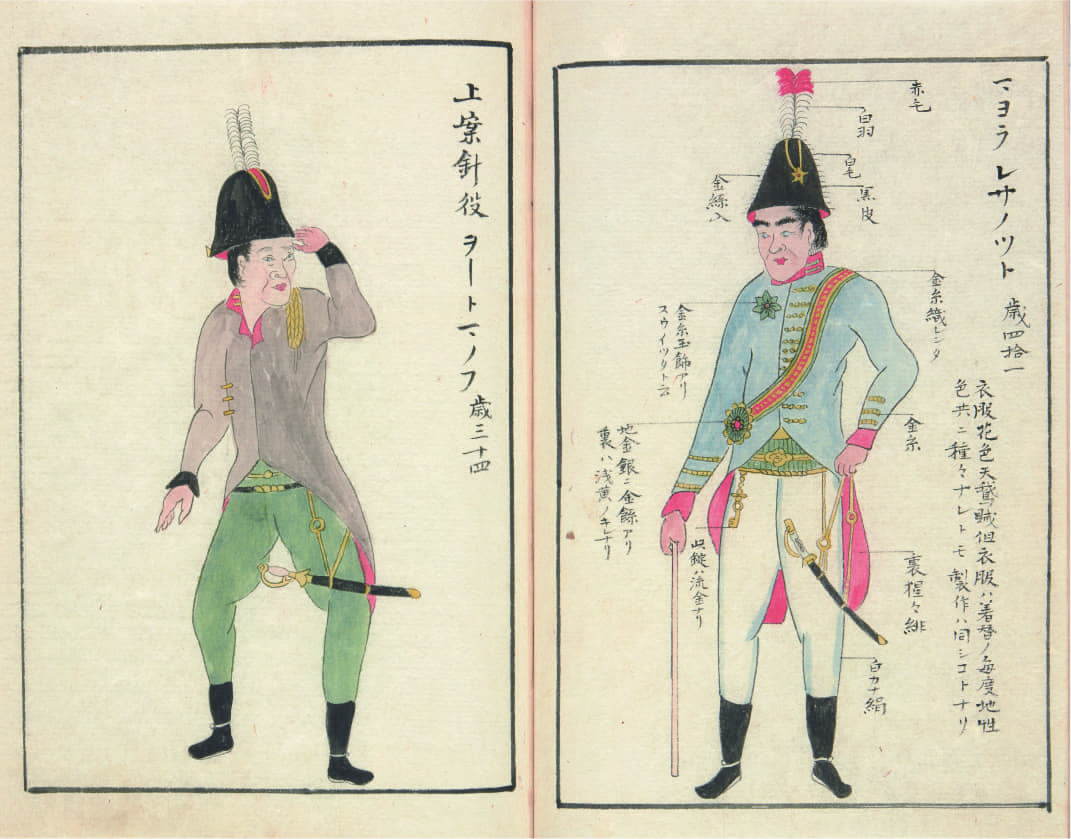 マヨラ レサノツト 歳四拾一
衣服花色天鵞絨但衣服ハ着替ノ毎度地性
色共ニ種々ナレトモ製作ハ同シコトナリ
赤毛
白羽
白毛
黒皮
金絲入
金糸織レンタ
金糸玉飾アリ
スウイツタト云
金糸
地金銀ニ金錺アリ
裏ハ浅黄ノキレナリ
此鍵ハ流金ナリ
裏猩々緋
白カナ絹
上案針役 ヲートマノフ 歳三十四